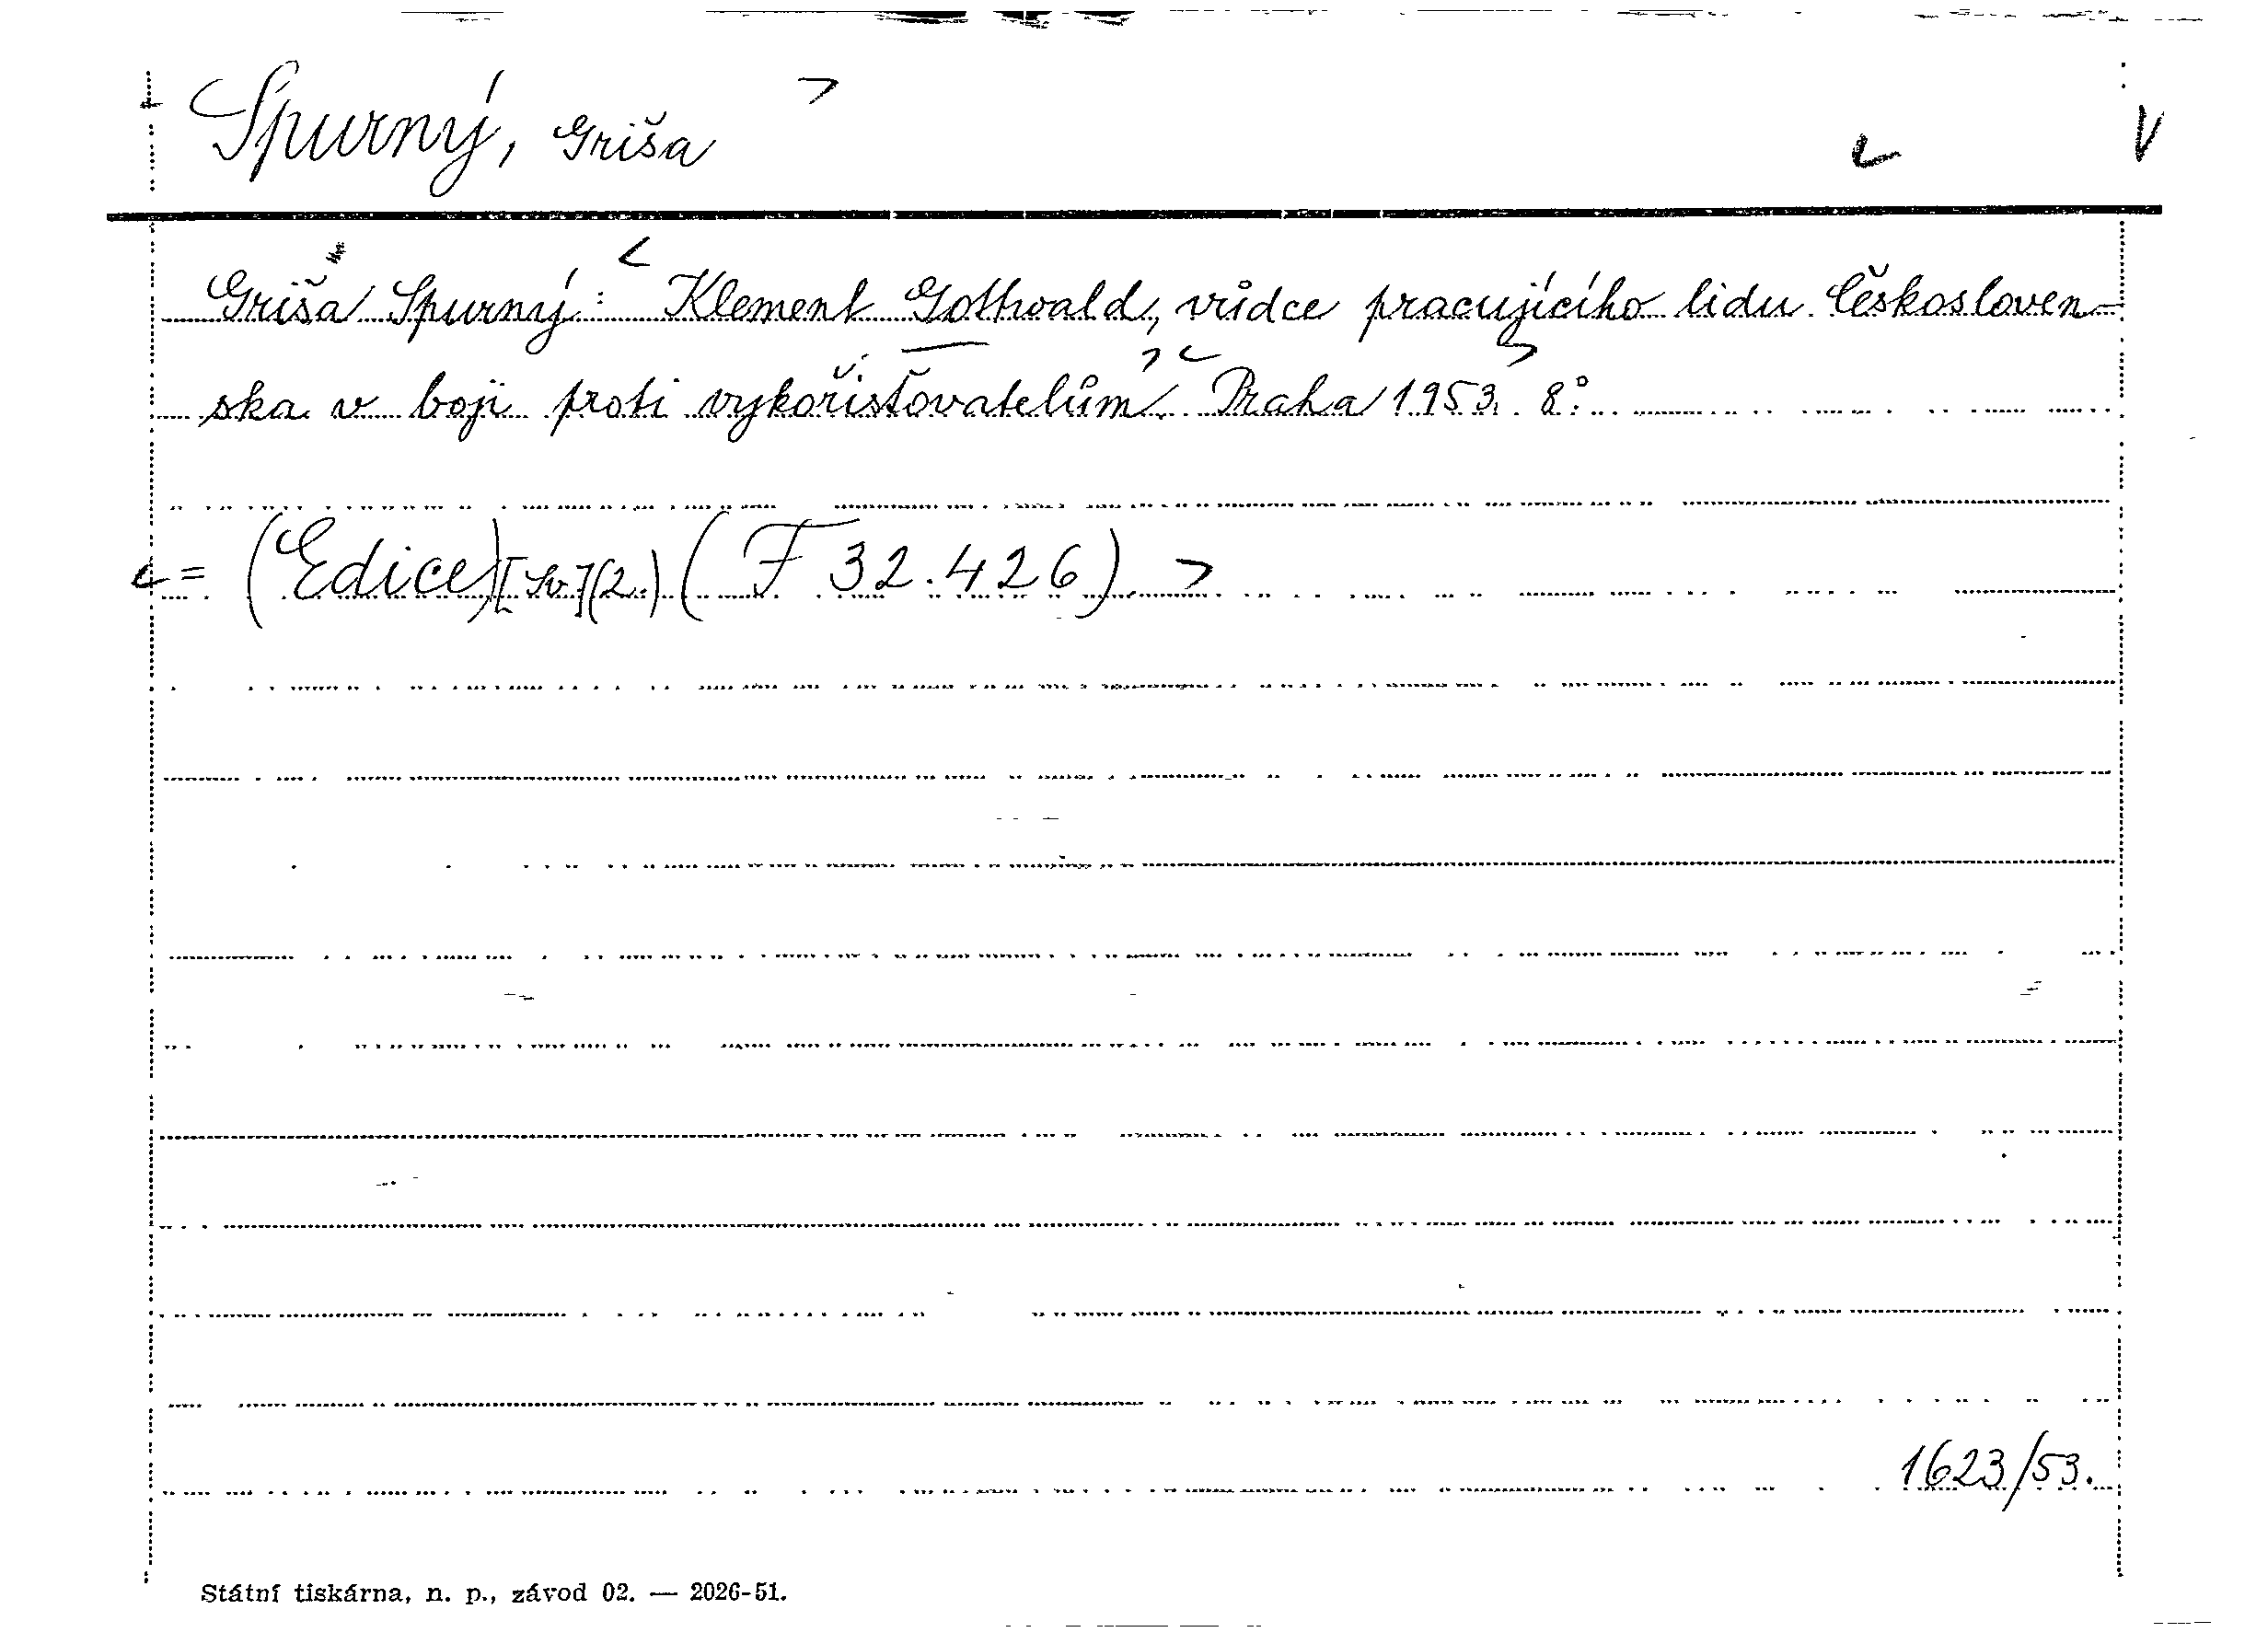 Spurný, Griša
Griša Spurný: Klement Gottwald, vůdce pracujícího lidu Českosloven-
ska v boji proti vykořisťovatelům. Praha 1953. 8°.
= (Edice) [Sv.] (2.) (F 32.426)
1623/53.
Státní tiskárna, n. p., závod 02. — 2026-51.